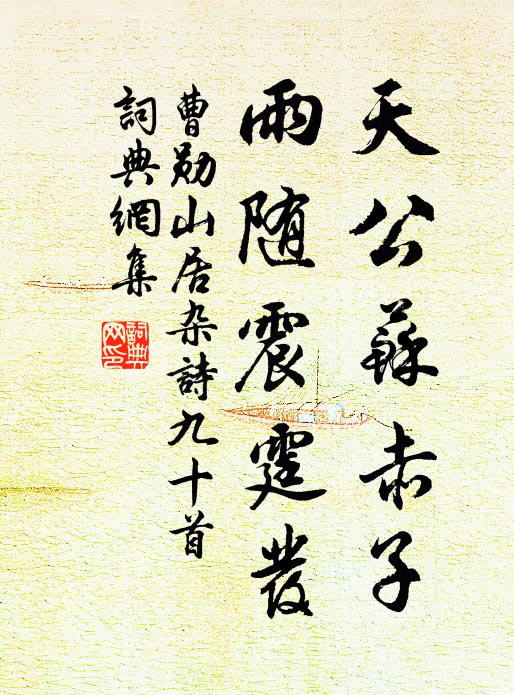 天公蘇赤子
雨随震霆發
曹勛山居杂詩九十首
詞典網集
詞典
网印